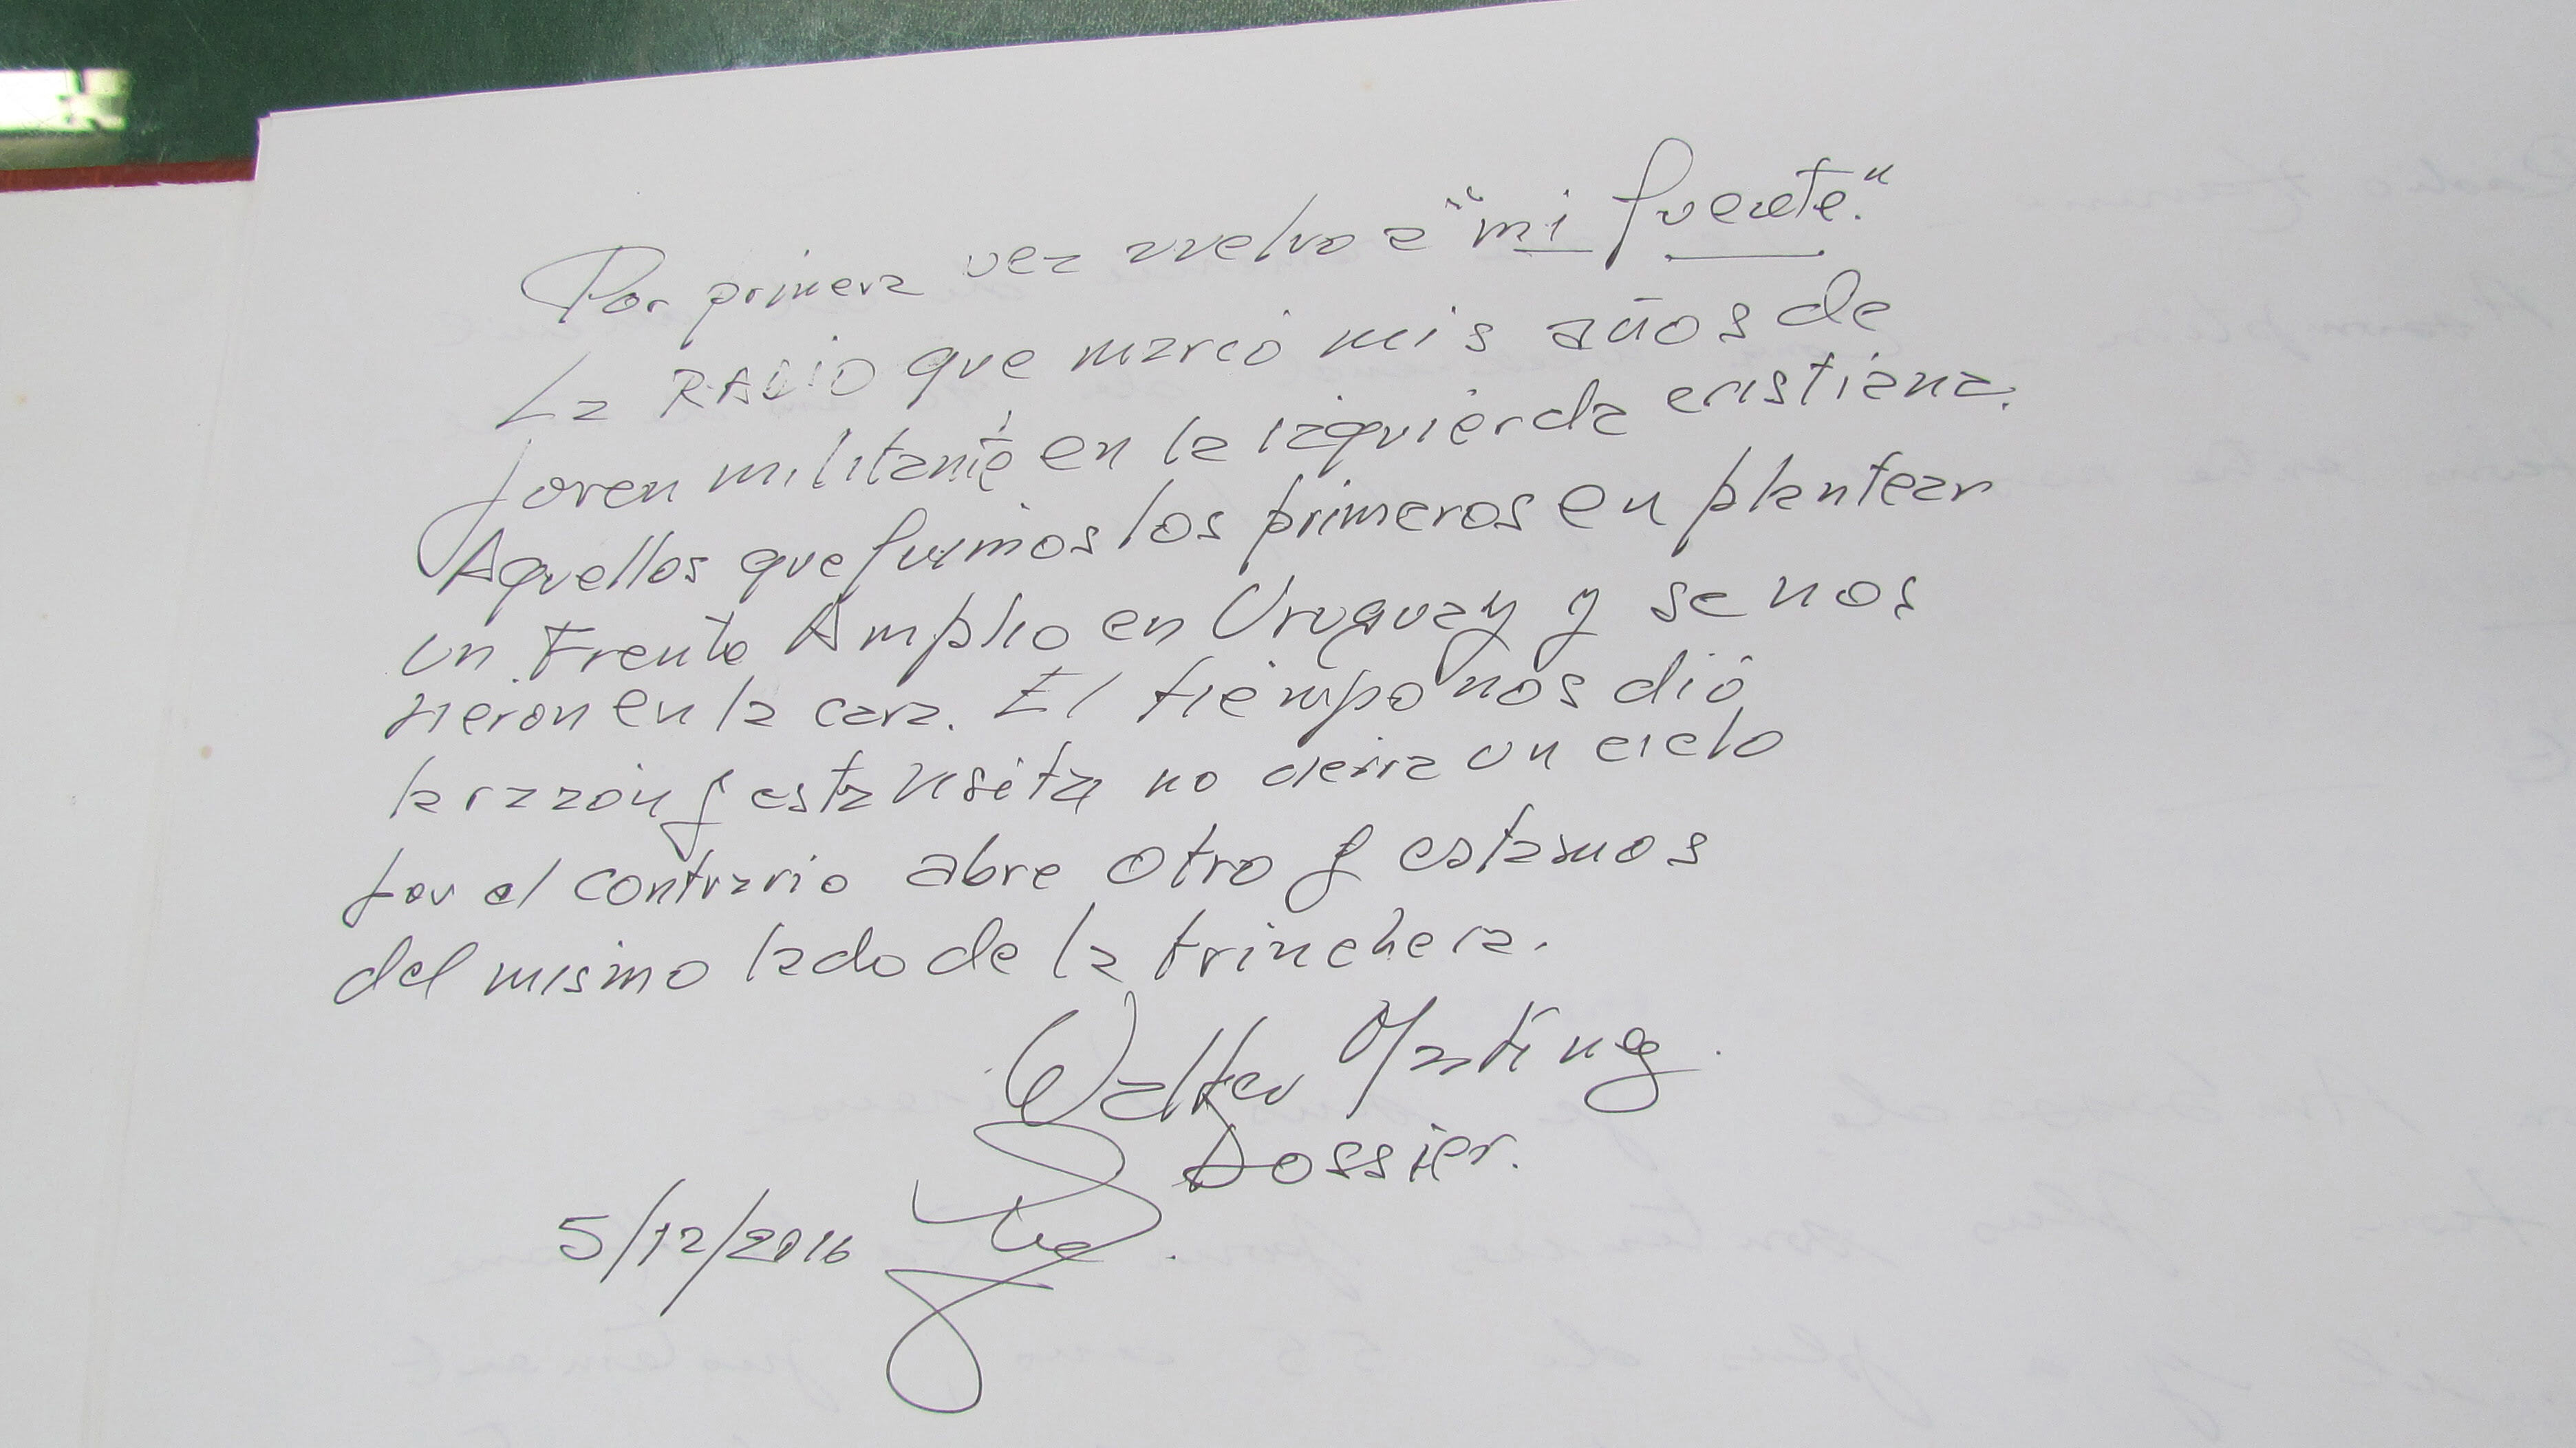 Por primera vez vuelvo a "mi fuente."
La RADIO que marcó mis años de
joven militante en la izquierda cristiana.
Aquellos que fuimos los primeros en plantear
un Frente Amplio en Uruguay y se nos
rieron en la cara. El tiempo nos dió
la razón y esta visita no cierra un ciclo
por el contrario abre otro y estamos
del mismo lado de la trinchera.
Walter Martínez
Dossier.
5/12/2016